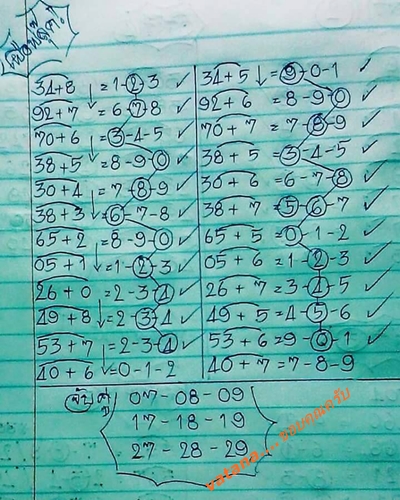 34+8 = 1-2-3 ✓
92+7 = 6-7-8 ✓
70+6 = 3-4-5 ✓
38+5 = 8-9-0 ✓
30+4 = 7-8-9 ✓
38+3 = 6-7-8 ✓
65+2 = 8-9-0 ✓
05+1 = 1-2-3 ✓
26+0 = 2-3-4 ✓
49+8 = 2-3-4 ✓
53+7 = 2-3-4 ✓
40+6 = 0-1-2
34+5 = 9-0-1 ✓
92+6 = 8-9-0 ✓
70+7 = 7-8-9 ✓
38+5 = 3-4-5 ✓
30+6 = 6-7-8 ✓
38+7 = 5-6-7 ✓
65+5 = 0-1-2 ✓
05+6 = 1-2-3 ✓
26+7 = 3-4-5 ✓
49+5 = 4-5-6 ✓
53+6 = 9-0-1 ✓
40+7 = 7-8-9
จับคู่ 07-08-09
17-18-19
27-28-29
vatana....ขอบคุณครับ